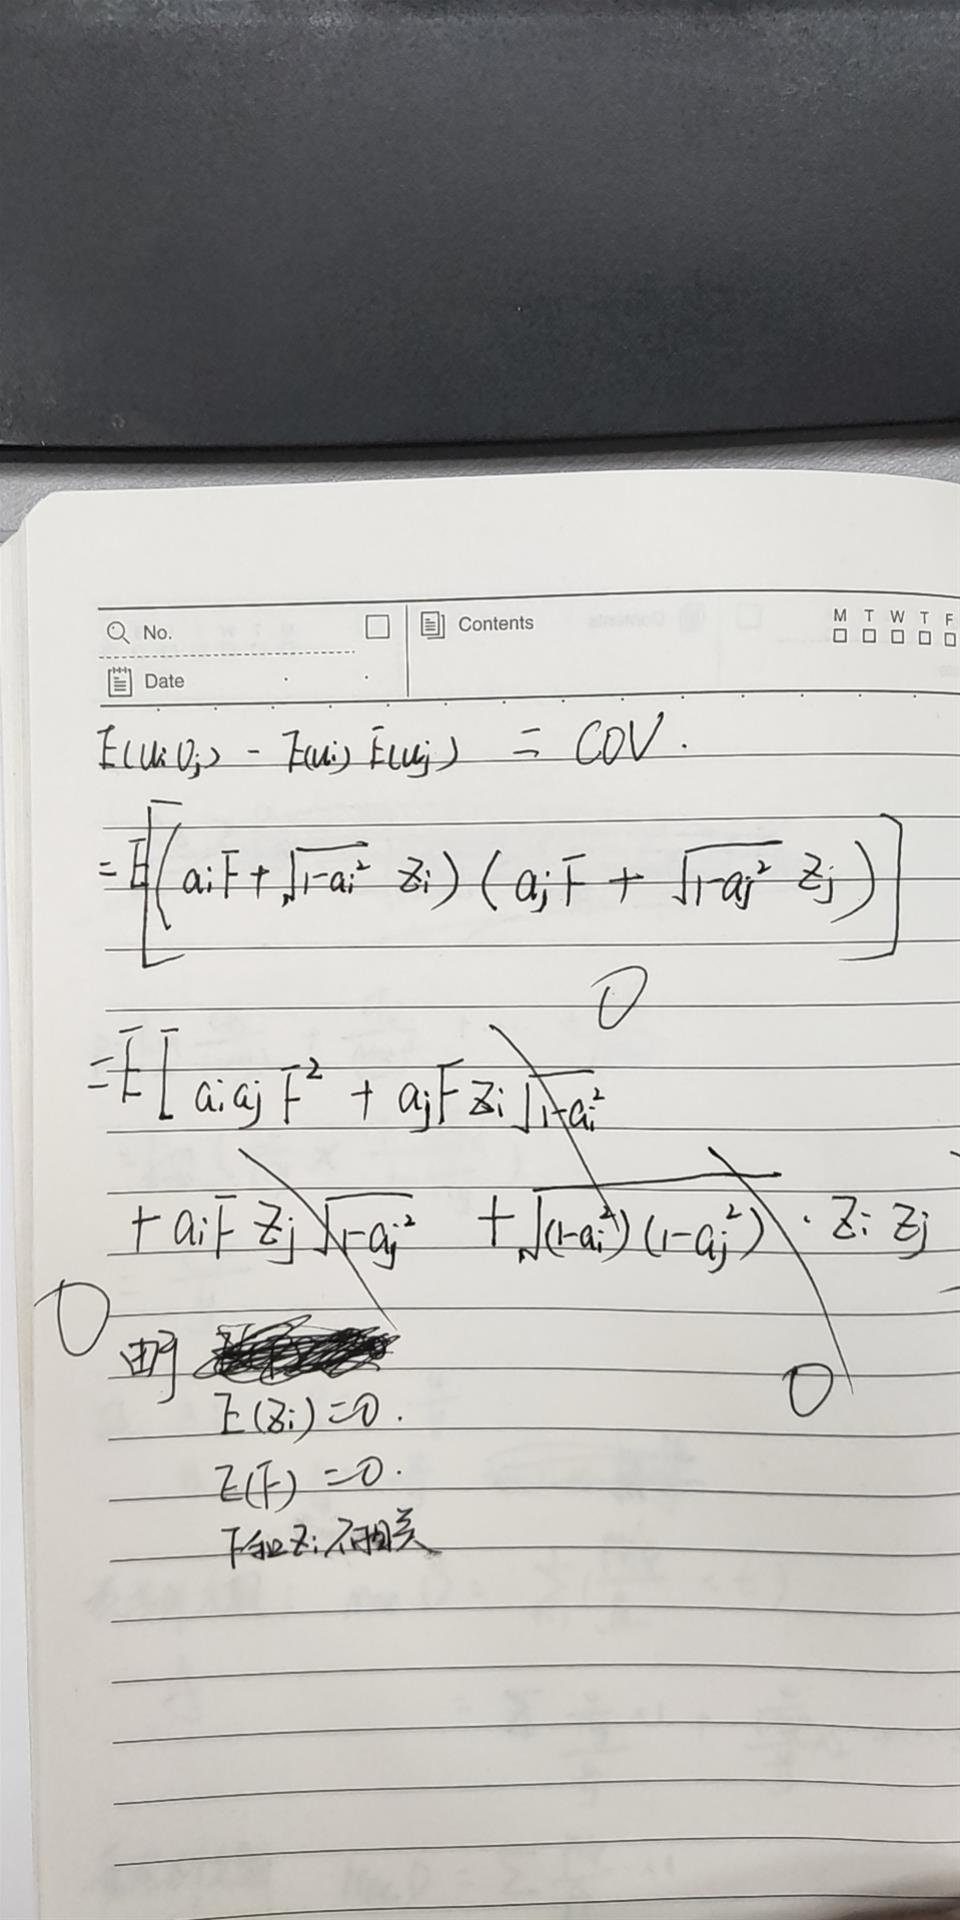 No.
Contents
M T W T F
Date
E(UiUj) - E(Ui) E(Uj) = COV.
= E[(aiF + √1-ai² Zi) (ajF + √1-aj² Zj)]
0
= E[aiajF² + ajFZi√1-ai²
+ aiFZj√1-aj² + √(1-ai²)(1-aj²) · Zi Zj
0
由于
0
E(Zi) = 0.
E(F) = 0.
F和Zi不相关